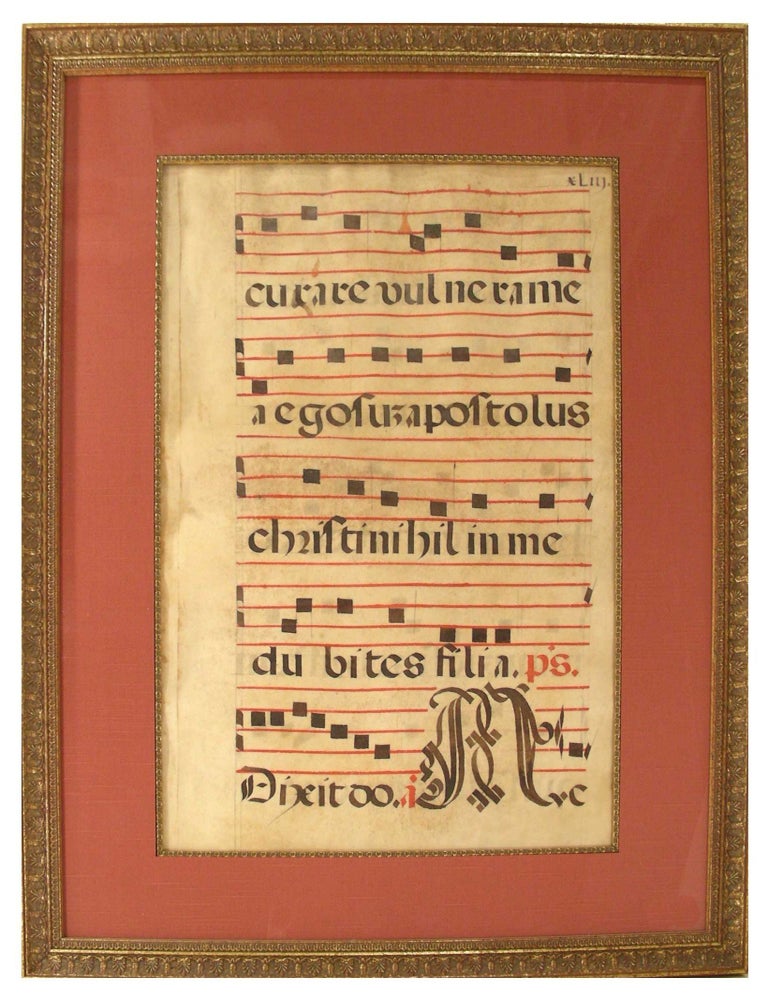 xLiij.
curare vulnera me
a ego suz apostolus
christi nihil in me
du bites filia. ps.
Dixit do. a